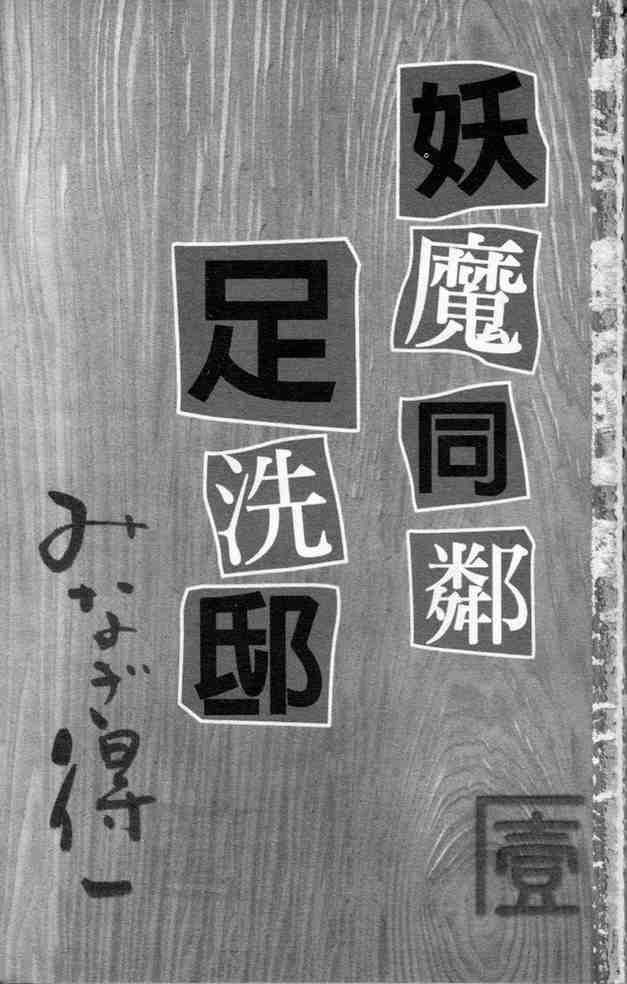 妖魔同鄰
足洗邸
みなぎ得一
壹